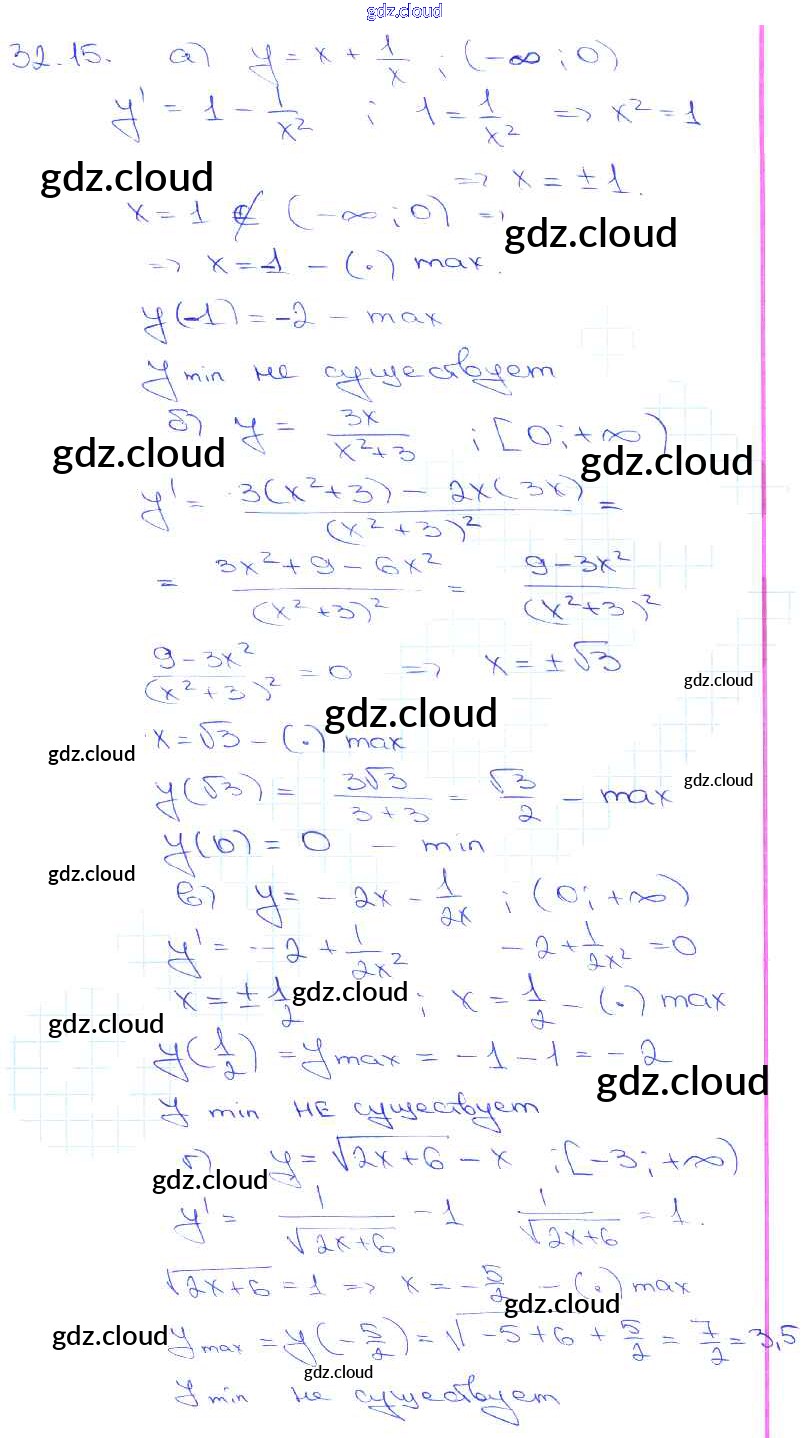 gdz.cloud
32.15. а) y = x + 1/x ; (-∞ ; 0)
y' = 1 - 1/x² ; 1 = 1/x² => x² = 1
gdz.cloud
=> x = ±1.
x = 1 ∉ (-∞ ; 0) =>
gdz.cloud
=> x = -1 - (·) max.
y(-1) = -2 - max
y min не существует
б) y = 3x/(x²+3) ; [0 ; +∞)
gdz.cloud
gdz.cloud
y' = (3(x²+3) - 2x(3x))/(x²+3)² =
= (3x²+9-6x²)/(x²+3)² = (9-3x²)/(x²+3)²
(9-3x²)/(x²+3)² = 0 => x = ±√3
gdz.cloud
gdz.cloud
x = √3 - (·) max
gdz.cloud
gdz.cloud
y(√3) = 3√3/(3+3) = √3/2 - max
y(0) = 0 - min
gdz.cloud
в) y = -2x - 1/2x ; (0; +∞)
y' = -2 + 1/2x² -2 + 1/2x² = 0
x = ±1/2 ; x = 1/2 - (·) max
gdz.cloud
gdz.cloud
y(1/2) = y max = -1 - 1 = -2
gdz.cloud
y min НЕ существует
г) y = √(2x+6) - x ; [-3 ; +∞)
gdz.cloud
y' = 1/√(2x+6) - 1 1/√(2x+6) = 1.
√(2x+6) = 1 => x = -5/2 - (·) max
gdz.cloud
gdz.cloud
y max = y(-5/2) = √-5+6 + 5/2 = 7/2 = 3,5
gdz.cloud
y min не существует